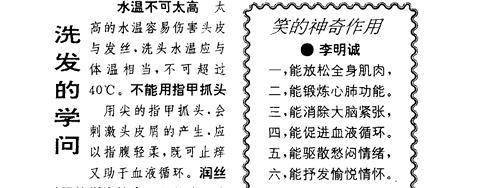 洗发的学问
水温不可太高 太
高的水温容易伤害头皮
与发丝，洗头水温应与
体温相当，不可超过
40℃。不能用指甲抓头
用尖的指甲抓头，会
刺激头皮屑的产生，应
以指腹轻柔，既可止痒
又助于血液循环。润丝
笑的神奇作用
●李明诚
一，能放松全身肌肉，
二，能锻炼心肺功能。
三，能消除大脑紧张，
四，能促进血液循环。
五，能驱散愁闷情绪，
六，能抒发愉悦情怀。